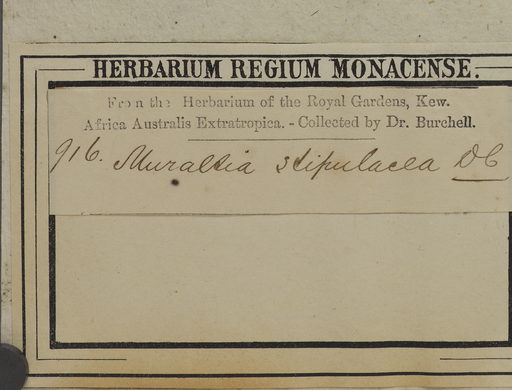 HERBARIUM REGIUM MONACENSE.
From the Herbarium of the Royal Gardens, Kew.
Africa Australis Extratropica. - Collected by Dr. Burchell.
916. Muraltia stipulacea DC